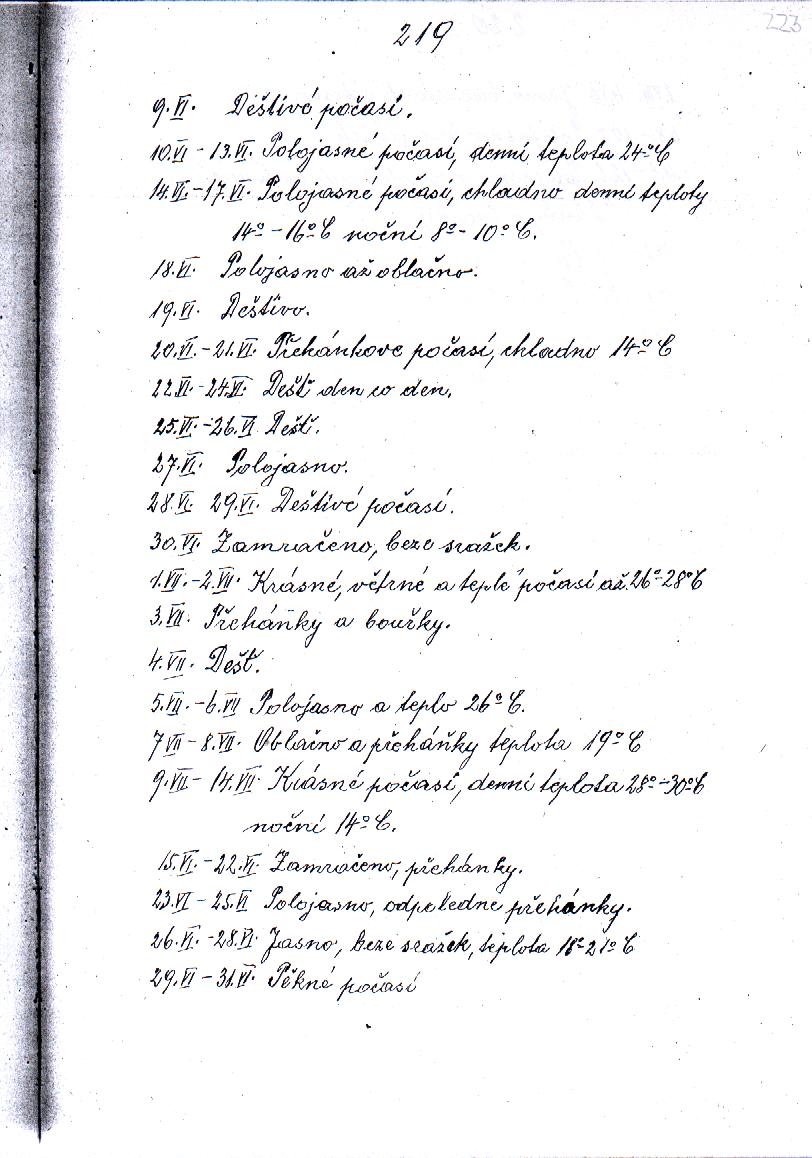 223
219
9.VI. Deštivé počasí.
10.VI - 13.VI. Polojasné počasí, denní teplota 24°C
14.VI.-17.VI. Polojasné počasí, chladno denní teploty
14° - 16°C noční 8° - 10°C.
18.VI. Polojasno až oblačno.
19.VI. Deštivo.
20.VI.-21.VI. Přehánkove počasí, chladno 14°C
22.VI.-24.VI. Dešť den co den.
25.VI.-26.VI Dešť.
27.VI. Polojasno.
28.VI. 29.VI. Deštivé počasí.
30.VI. Zamračeno, beze srážek.
1.VII.-2.VII. Krásné, větrné a teplé počasí až 26°-28°C
3.VII. Přeháňky a bouřky.
4.VII. Dešť.
5.VII.-6.VII Polojasno a teplo 26°C.
7VII-8.VII. Oblačno a přeháňky teplota 19°C
9.VII- 14.VII. Krásné počasí, denní teplota 28°-30°C
noční 14°C.
15.VI.-22.VI. Zamračeno, přehánky.
23.VI - 25.VI Polojasno, odpoledne přehánky.
26.VI.-28.VI. Jasno, beze srážek, teplota 18°-21°C
29.VI - 31.VI. Pěkné počasí